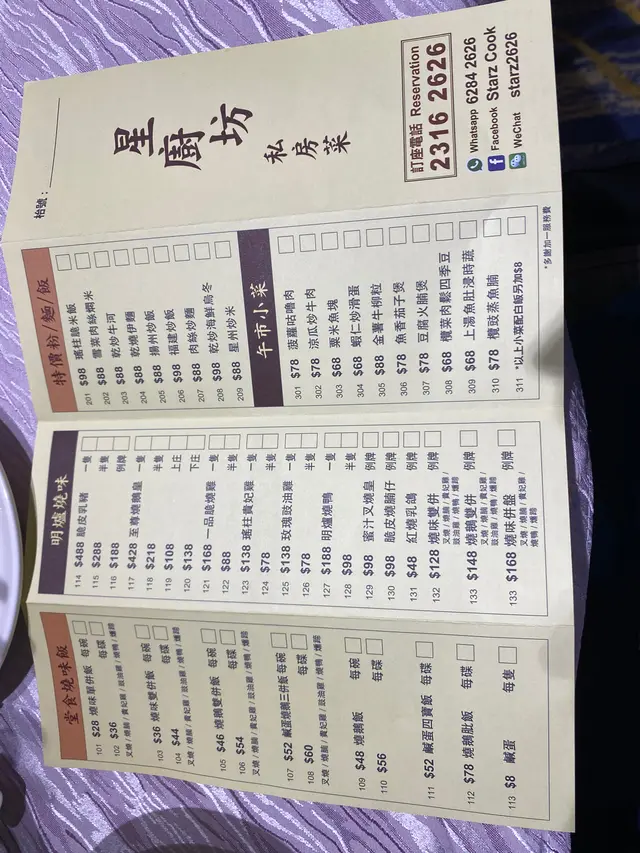 枱號：
星
廚
坊
私
房
菜
訂座電話 Reservation
2316 2626
Whatsapp 6284 2626
Facebook Starz Cook
WeChat starz2626
特價粉/麵/飯
201 $98 瑤柱脆米飯
202 $88 雪菜肉絲燜米
203 $88 乾炒牛河
204 $88 乾燒伊麵
205 $88 揚州炒飯
206 $98 福建炒飯
207 $88 肉絲炒麵
208 $98 乾炒海鮮烏冬
209 $88 星州炒米
午市小菜
301 $78 菠蘿咕嚕肉
302 $78 涼瓜炒牛肉
303 $68 粟米魚塊
304 $68 蝦仁炒滑蛋
305 $88 金薯牛柳粒
306 $78 魚香茄子煲
307 $78 豆腐火腩煲
308 $68 欖菜肉鬆四季豆
309 $68 上湯魚肚浸時蔬
310 $78 欖豉蒸魚腩
311 *以上小菜配白飯另加$8
*多謝加一服務費
明爐燒味
114 $488 脆皮乳豬 一隻
115 $288 半隻
116 $188 例牌
117 $428 至尊燒鵝皇 一隻
118 $218 半隻
119 $108 上庄
120 $138 下庄
121 $168 一品脆燒雞 一隻
122 $88 半隻
123 $138 瑤柱貴妃雞 一隻
124 $78 半隻
125 $138 玫瑰豉油雞 一隻
126 $78 半隻
127 $188 明爐燒鴨 一隻
128 $98 半隻
129 $98 蜜汁叉燒皇 例牌
130 $98 脆皮燒腩仔 例牌
131 $48 紅燒乳鴿 例牌
132 $128 燒味雙併 例牌
叉燒 / 燒腩 / 貴妃雞 /
豉油雞 / 燒鴨 / 燻蹄
133 $148 燒鵝雙併 例牌
叉燒 / 燒腩 / 貴妃雞 /
豉油雞 / 燒鴨 / 燻蹄
133 $168 燒味併盤 例牌
叉燒 / 燒腩 / 貴妃雞 / 豉油雞 /
燒鴨 / 燻蹄
堂食燒味飯
101 $28 燒味單併飯 每碗
102 $36 每碟
叉燒 / 燒腩 / 貴妃雞 / 豉油雞 / 燒鴨 / 燻蹄
103 $36 燒味雙併飯 每碗
104 $44 每碟
叉燒 / 燒腩 / 貴妃雞 / 豉油雞 / 燒鴨 / 燻蹄
105 $46 燒鵝雙併飯 每碗
106 $54 每碟
叉燒 / 燒腩 / 貴妃雞 / 豉油雞 / 燒鴨 / 燻蹄
107 $52 鹹蛋燒鵝三併飯 每碗
108 $60 每碟
叉燒 / 燒腩 / 貴妃雞 / 豉油雞 / 燒鴨 / 燻蹄
109 $48 燒鵝飯 每碗
110 $56 每碟
111 $52 鹹蛋四寶飯 每碟
112 $78 燒鵝肶飯 每碟
113 $8 鹹蛋 每隻